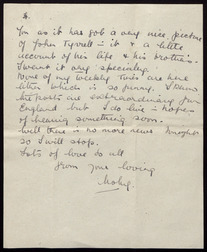 4.
You as it has got a very nice picture
of John Tyrrell in it & a little
account of his life & his brothers.
I want it very specially.
None of my weekly Times are here
either which is so funny. I know
the posts are extraordinary from
England but I do live in hopes
of hearing something soon.
Well there is no more news
so I will stop.
Lots of love to all
from your loving